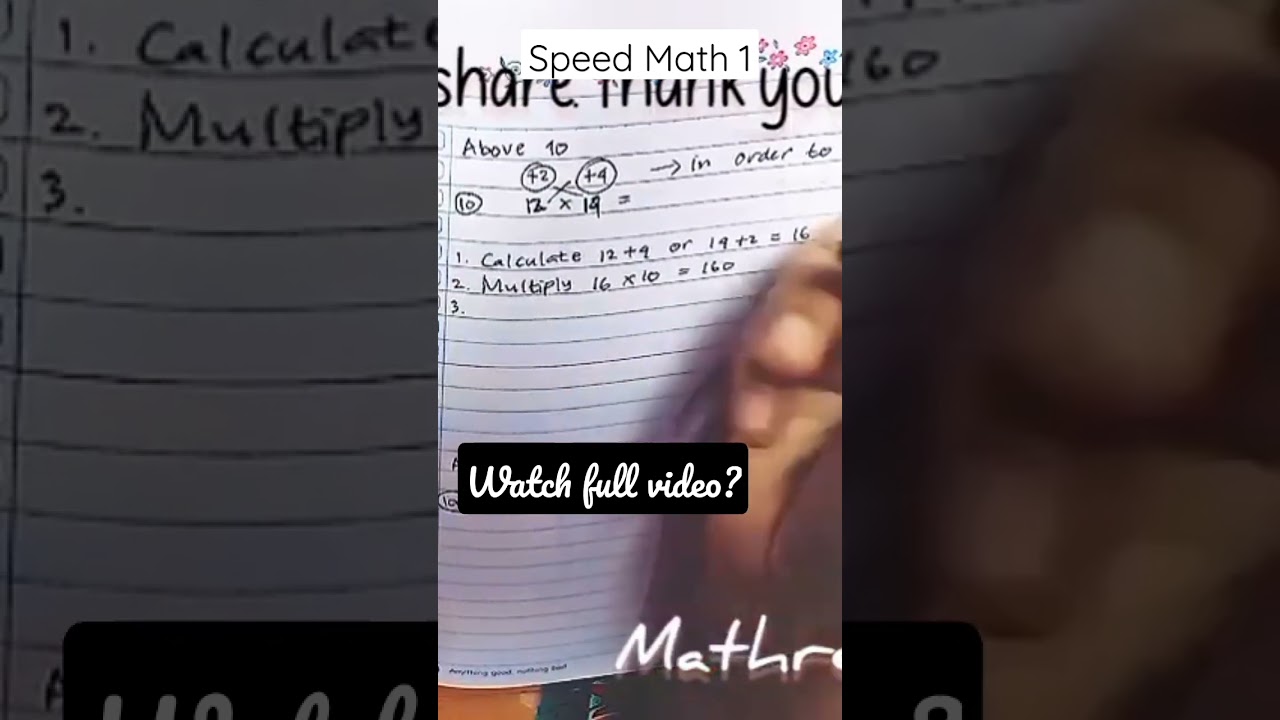 Speed Math 1
share. Thank you
Above 10
+2 +4 → in order to
10 12 × 14 =
1. Calculate 12+4 or 14+2 = 16
2. Multiply 16 × 10 = 160
3.
Watch full video?
Anything good, nothing bad
Mathr
1. Calculate
2. Multiply
3.
160